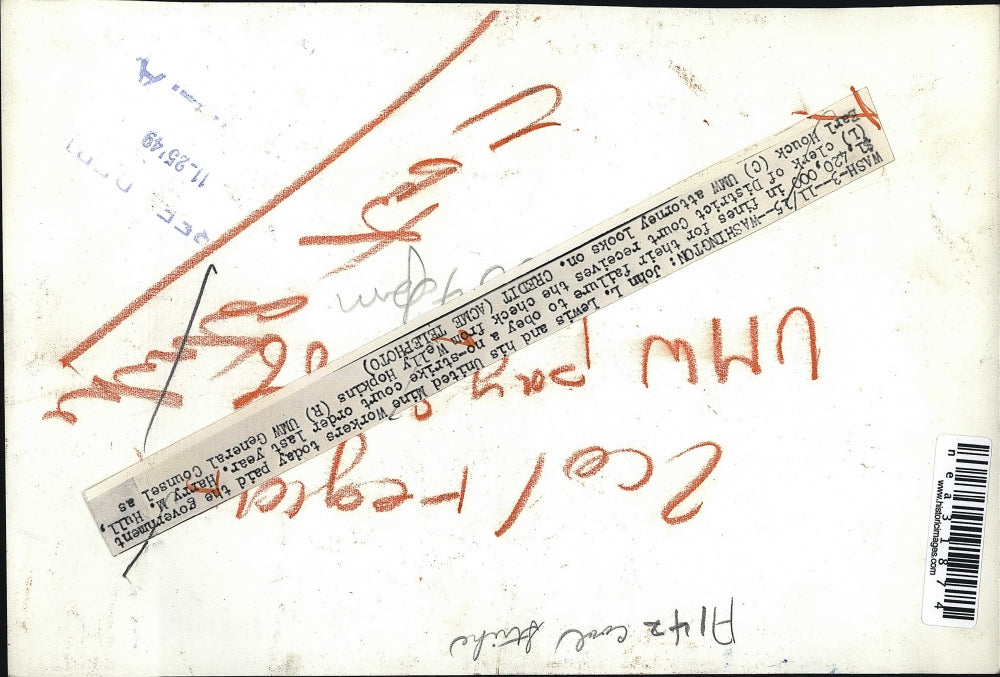 A142 coal strike
2 col reg
UMW pay
WASH-3--11/15--WASHINGTON: John L. Lewis and his United Mine Workers today paid the government
$1,420,000 in fines for their failure to obey a no-strike court order last year. Harry M. Hull,
(L) clerk of District Court receives the check from Welly Hopkins (R) UMW General Counsel as
Earl Houck (C) UMW attorney looks on. CREDIT (ACME TELEPHOTO)
11-25'49
www.historicimages.com
nea31874